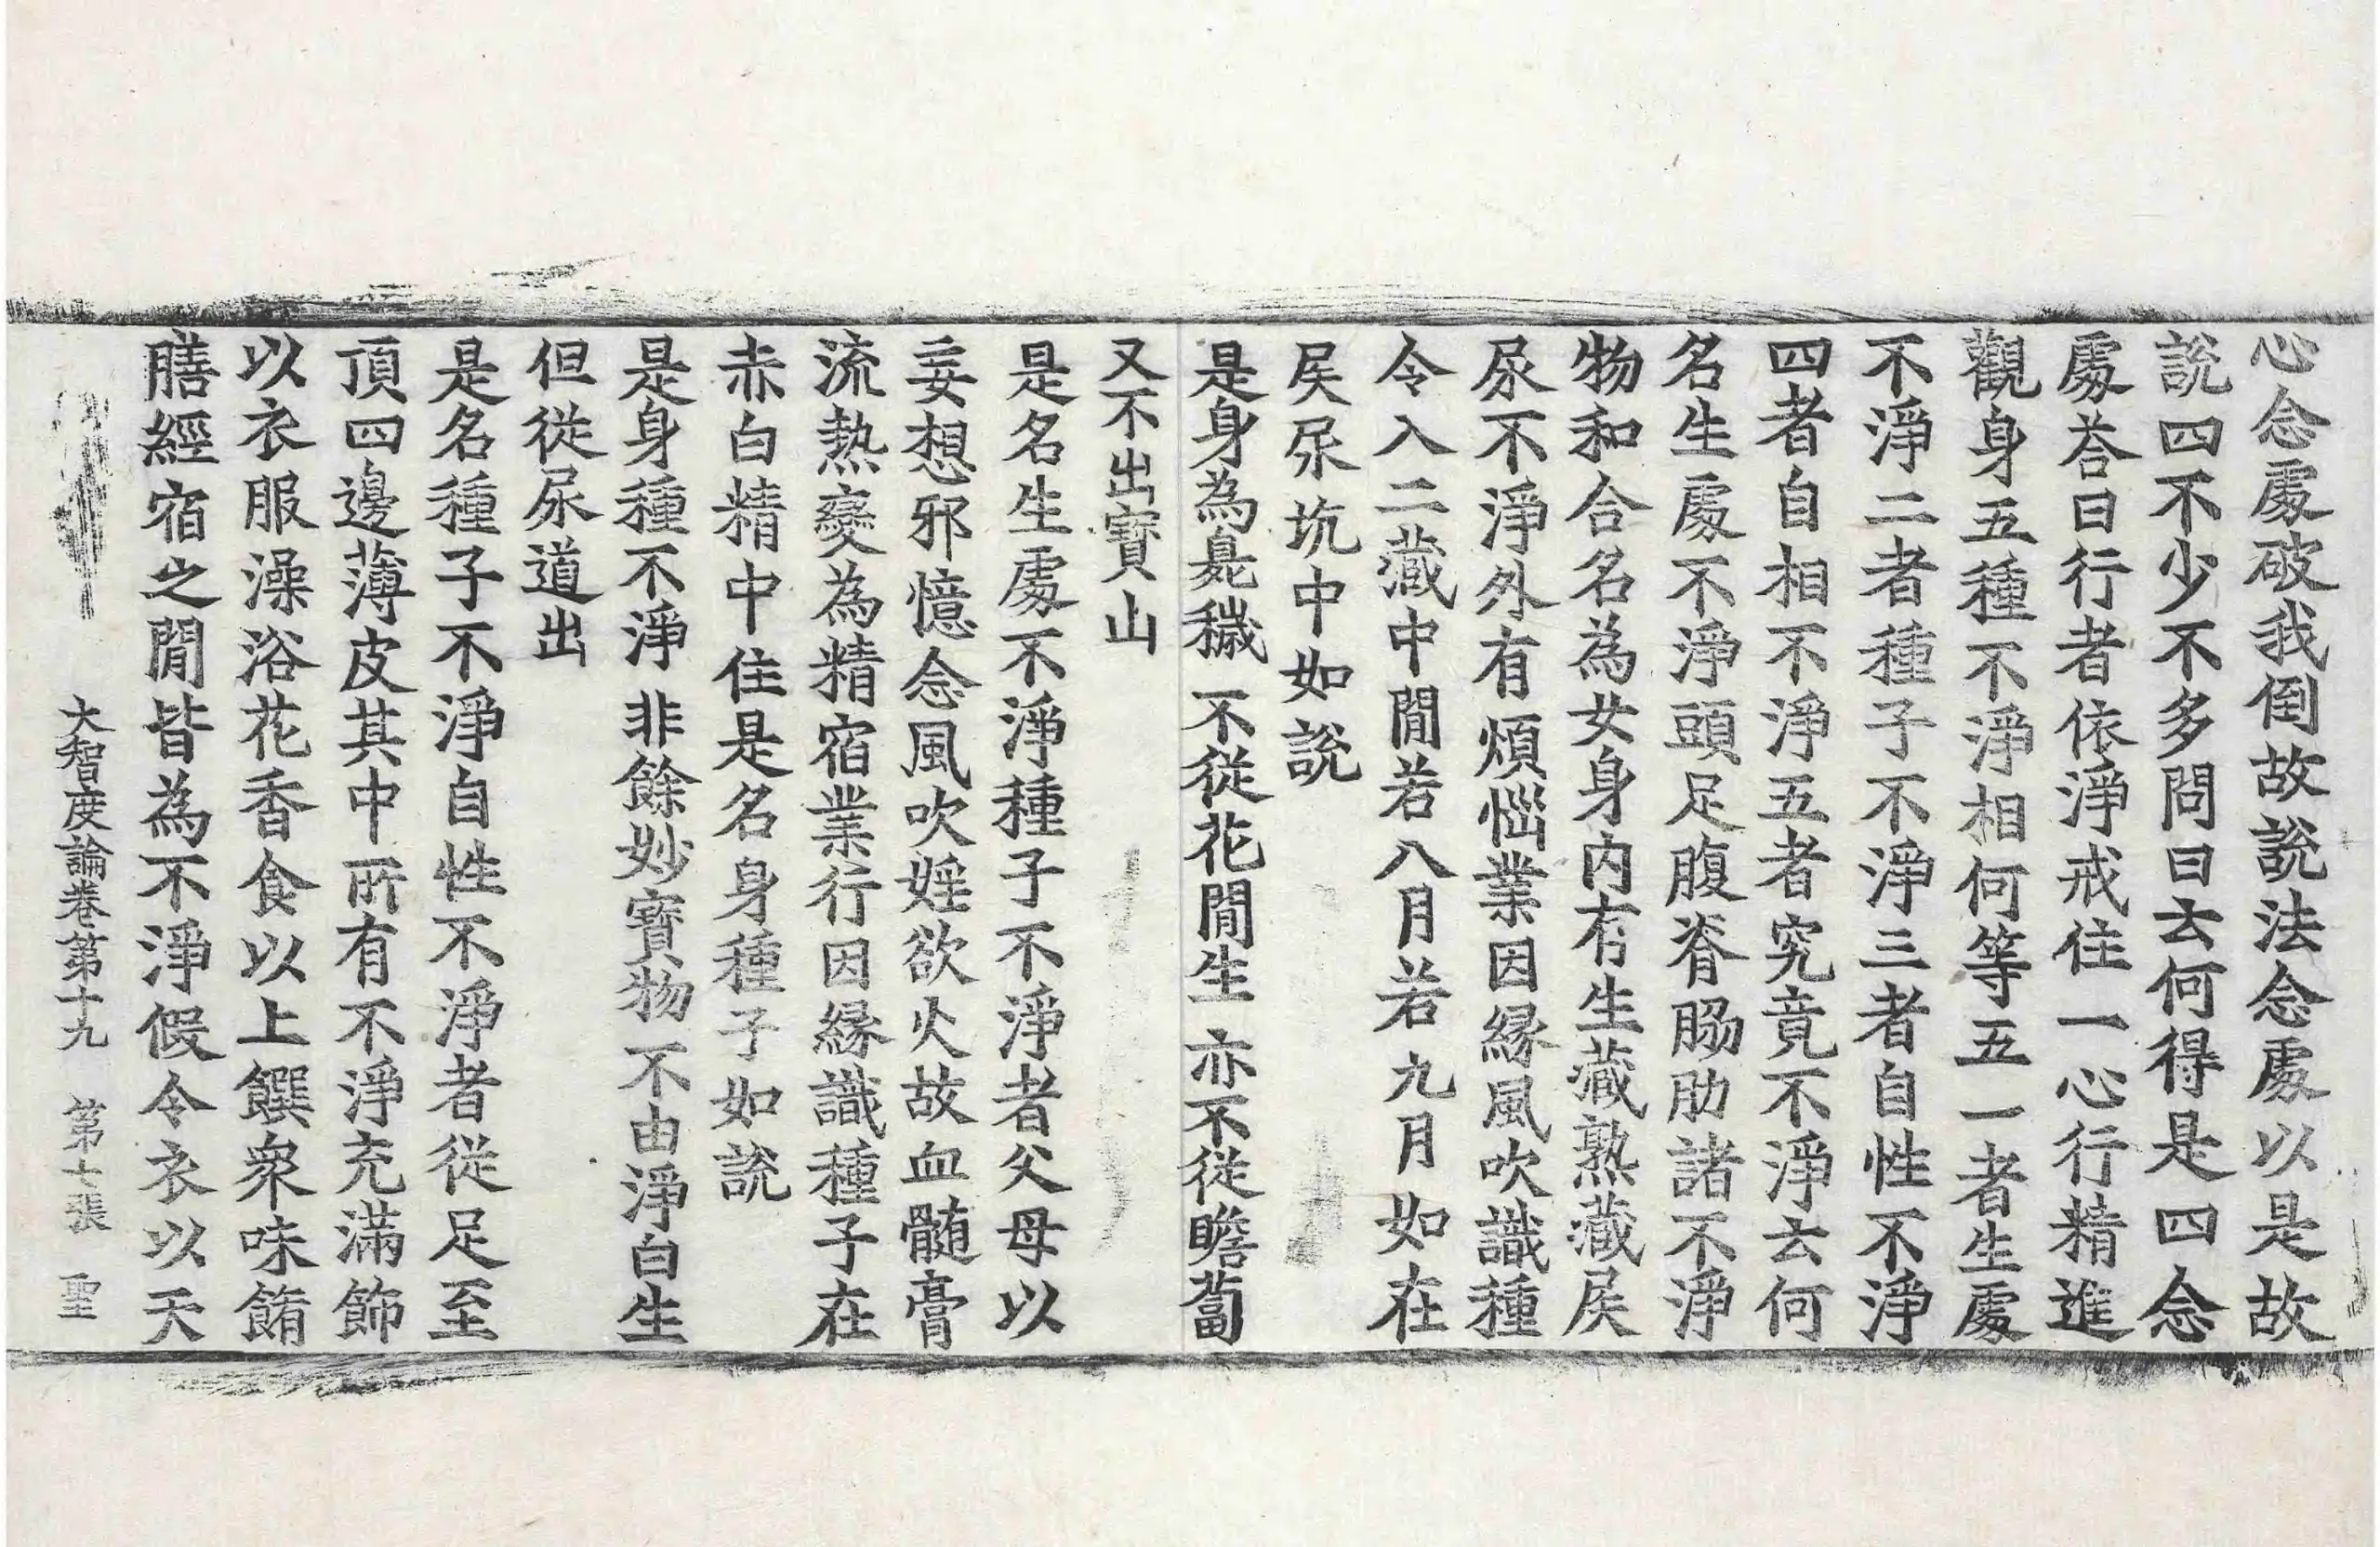 心念處破我倒故說法念處以是故
說四不少不多問曰云何得是四念
處荅曰行者依淨戒住一心行精進
觀身五種不淨相何等五一者生處
不淨二者種子不淨三者自性不淨
四者自相不淨五者究竟不淨云何
名生處不淨頭足腹脊脇肋諸不淨
物和合名為女身內有生藏熟藏屎
尿不淨外有煩惱業因緣風吹識種
令入二藏中間若八月若九月如在
屎尿坑中如說
是身為臰穢 不從花間生 亦不從瞻蔔
又不出寶山
是名生處不淨種子不淨者父母以
妄想邪憶念風吹婬欲火故血髓膏
流熱變為精宿業行因緣識種子在
赤白精中住是名身種子如說
是身種不淨 非餘妙寶物 不由淨白生
但從尿道出
是名種子不淨自性不淨者從足至
頂四邊薄皮其中所有不淨充滿飾
以衣服澡浴花香食以上饌衆味餚
膳經宿之間皆為不淨假令衣以天
大智度論卷第十九 第七張 聖